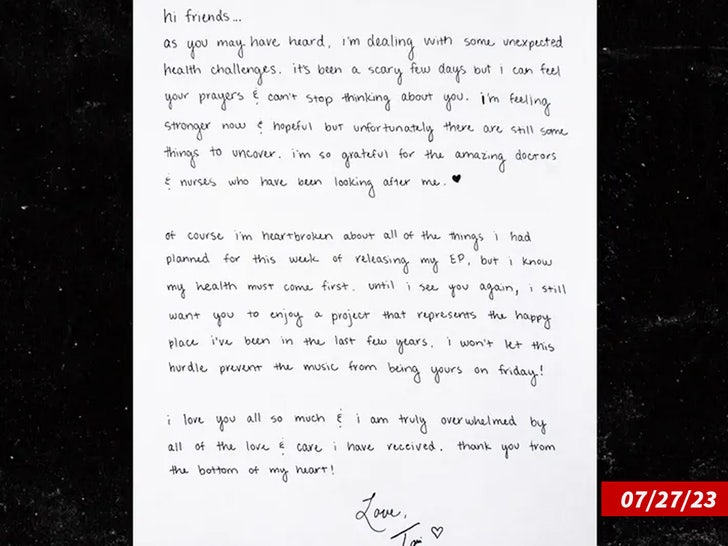 hi friends...
as you may have heard, i'm dealing with some unexpected
health challenges. it's been a scary few days but i can feel
your prayers & can't stop thinking about you. i'm feeling
stronger now & hopeful but unfortunately there are still some
things to uncover. i'm so grateful for the amazing doctors
& nurses who have been looking after me. ♥
of course i'm heartbroken about all of the things i had
planned for this week of releasing my EP, but i know
my health must come first. until i see you again, i still
want you to enjoy a project that represents the happy
place i've been in the last few years. i won't let this
hurdle prevent the music from being yours on friday!
i love you all so much & i am truly overwhelmed by
all of the love & care i have received. thank you from
the bottom of my heart!
Love,
Tori ♡
07/27/23